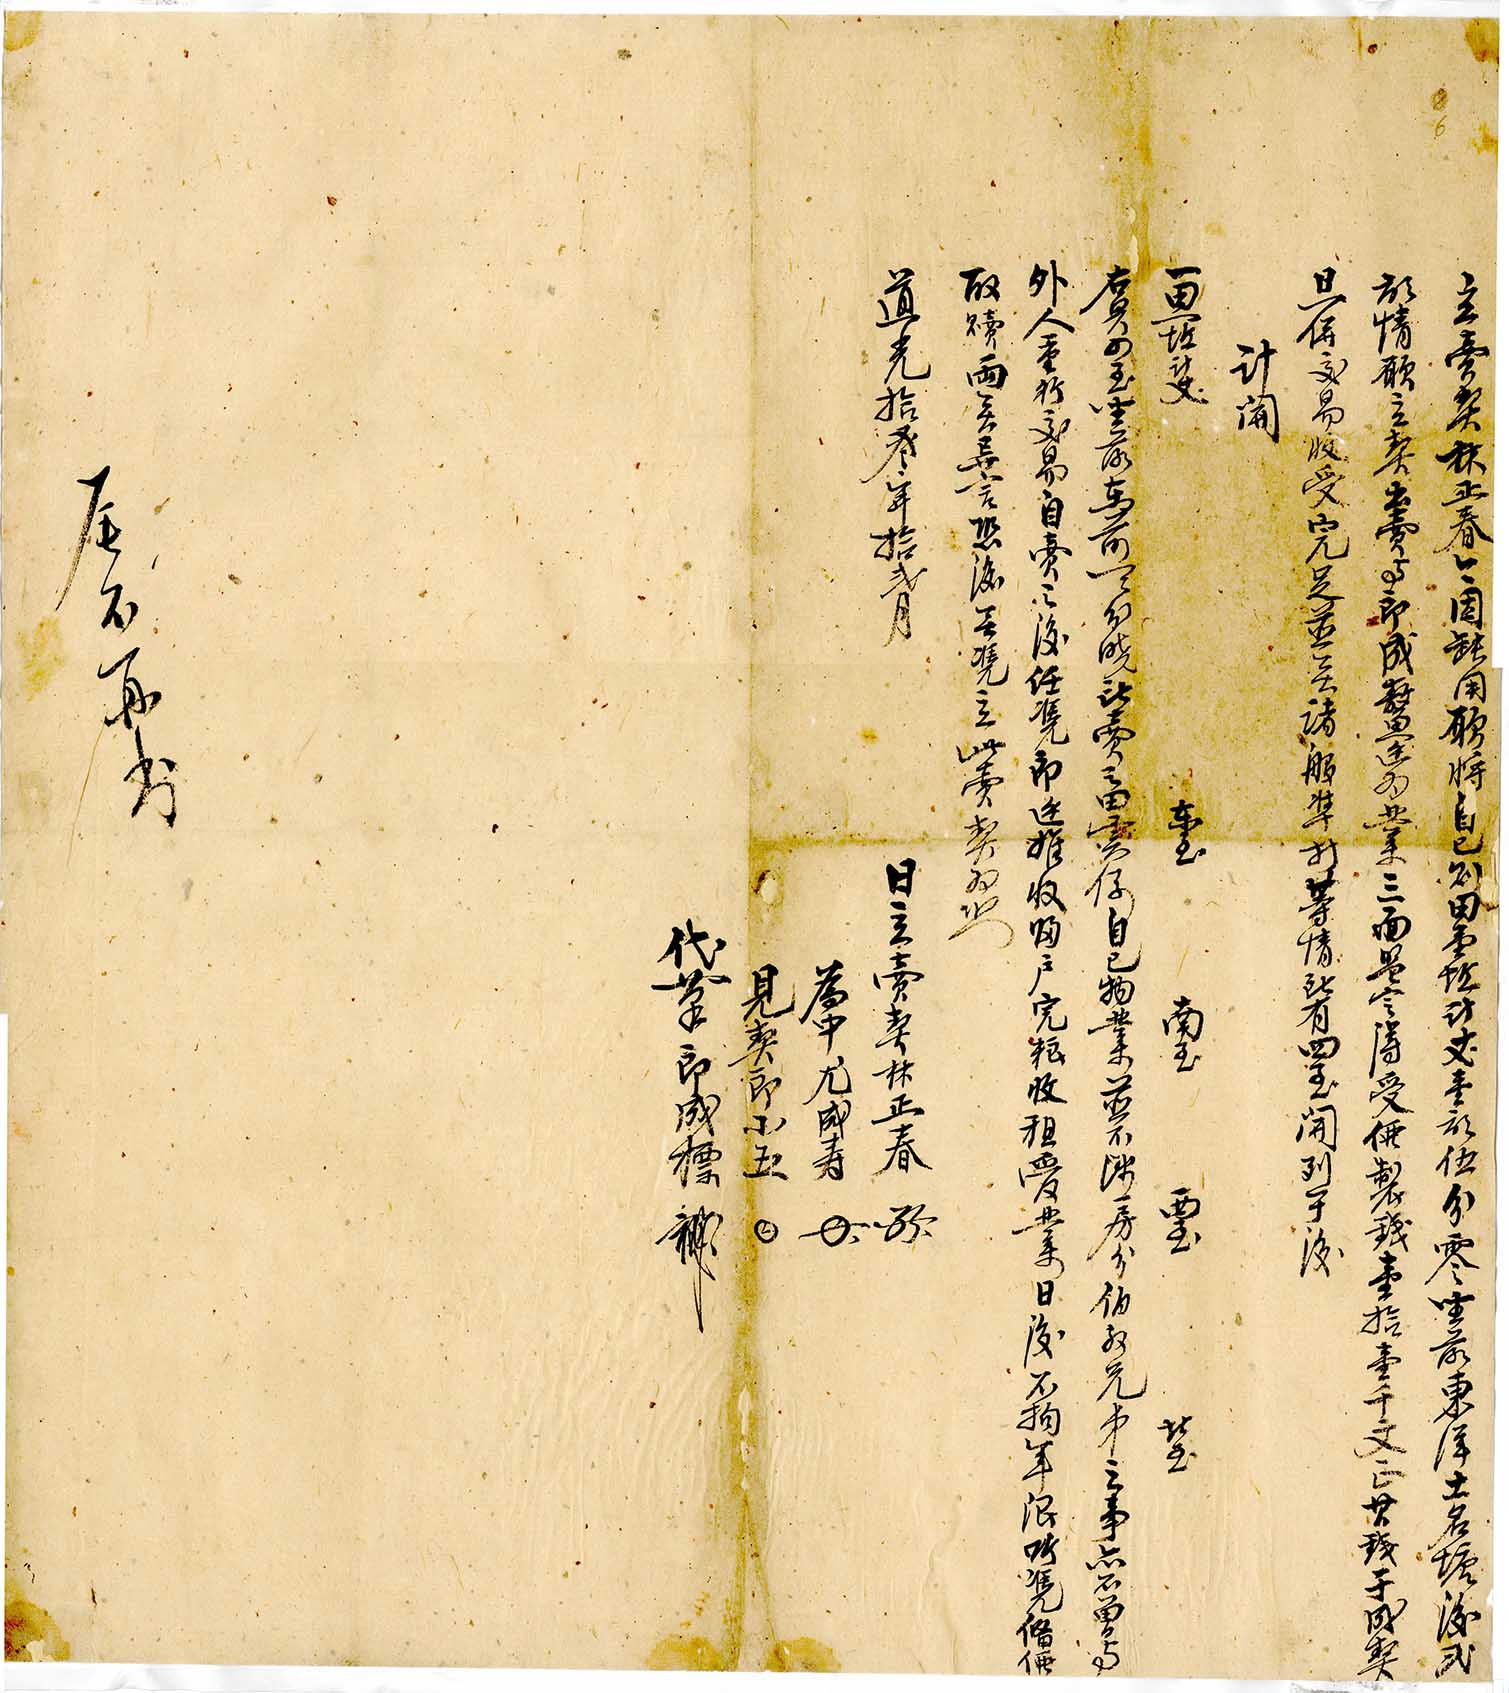 立賣契林正春今因缺用願將自己氽田壹坵計丈壹畝伍分零坐落東洋土名塘後貳
畝情願立契出賣與郎成鰲邊為業三面只言定得受價製錢壹拾壹千文正其錢于成契
日俱交易收受完足並无諸般準折等情所有四至開列于後
計開
一田坵計丈 東至 南至 西至 北至
右具四至坐落東前一一分曉所賣之田實係自己物業並不涉房分伯叔兄弟之事亦不曾與
外人重行交易自賣之後任憑郎邊推收歸戶完粮收租受業日後不拘年限听憑備價
取贖兩无異言恐後无憑立此賣契為照
道光拾叁年拾貳月
日立賣契林正春
為中尤成壽
見契郎小五
代筆郎成標
86